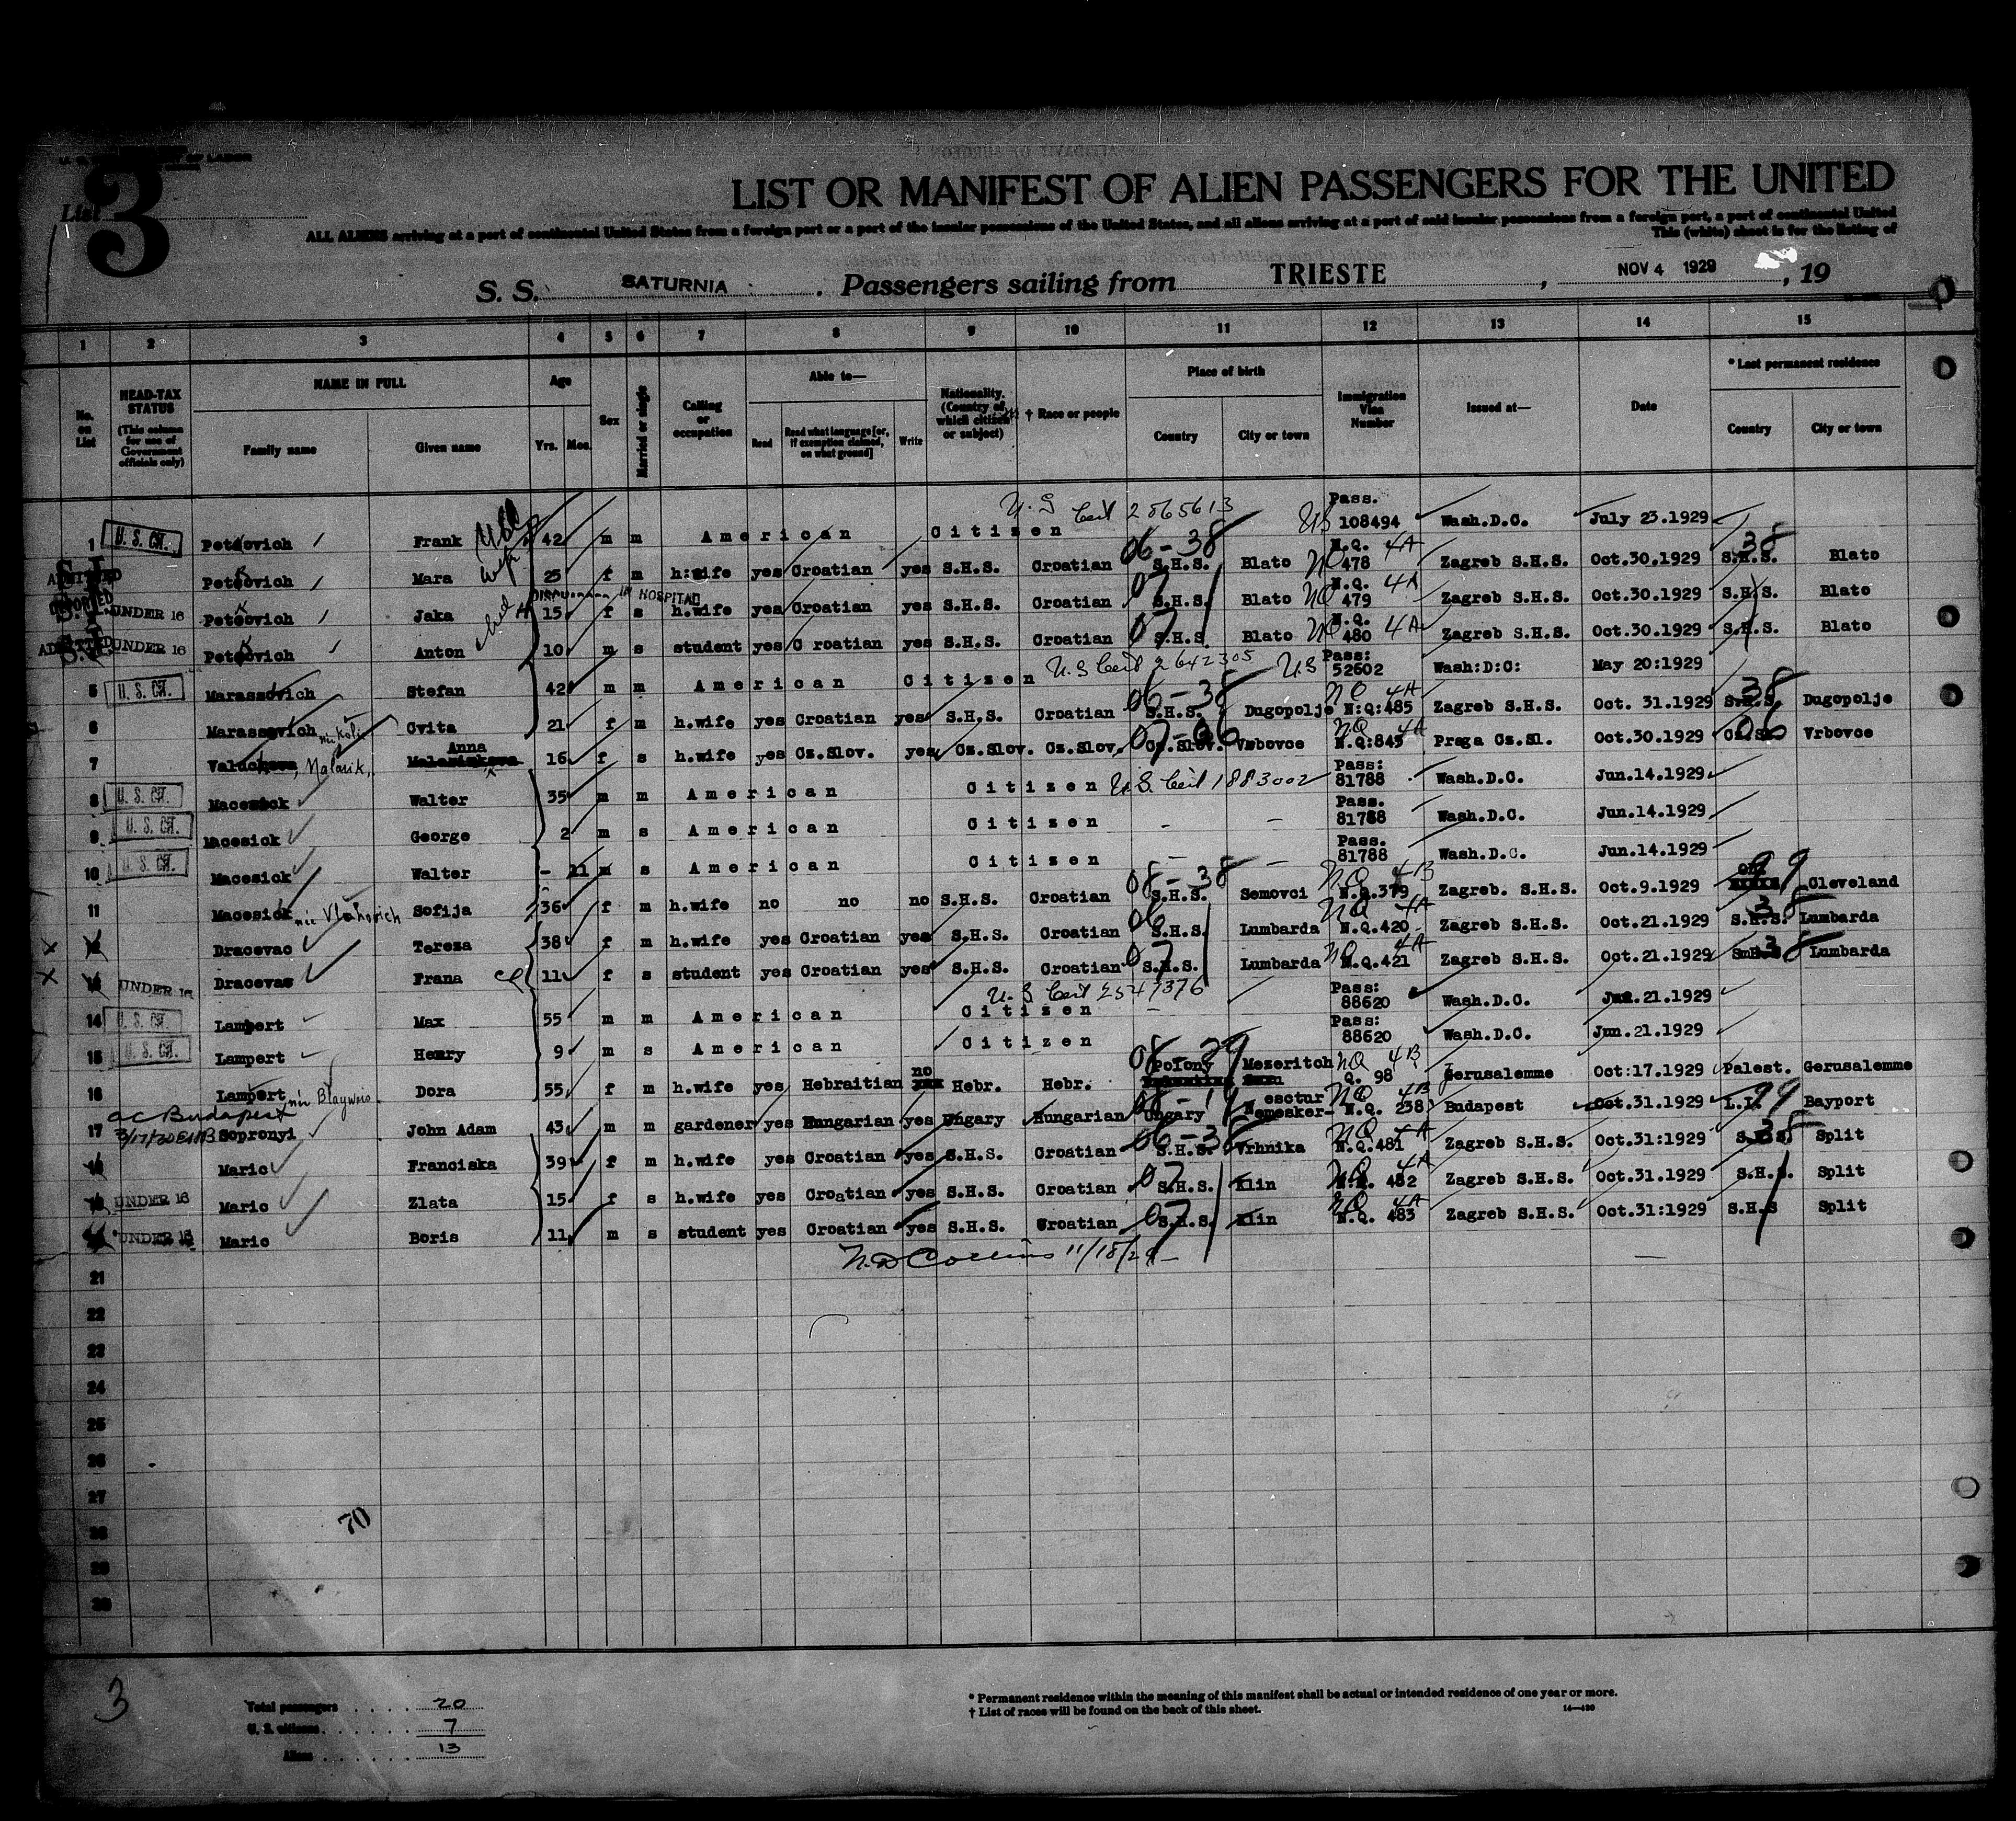 List 3
LIST OR MANIFEST OF ALIEN PASSENGERS FOR THE UNITED
ALL ALIENS arriving at a port of continental United States from a foreign port or a port of the insular possessions of the United States, and all aliens arriving at a port of said insular possessions from a foreign port, a port of continental United
This (white) sheet is for the listing of
S. S. SATURNIA . Passengers sailing from TRIESTE , NOV 4 1929 , 19
1 2 3 4 5 6 7 8 9 10 11 12 13 14 15
No. on List
HEAD-TAX STATUS (This column for use of Government officials only)
NAME IN FULL
Family name Given name
Age
Yrs. Mos.
Sex
Married or single
Calling or occupation
Able to—
Read Read what language [or, if exemption claimed, on what ground] Write
Nationality. (Country of which citizen or subject)
† Race or people
Place of birth
Country City or town
Immigration Visa Number
Issued at—
Date
* Last permanent residence
Country City or town
U.S Cert 2865613
1 U. S. CIT. Petcovich Frank 42 m m American Citizen US Pass. 108494 Wash.D.C. July 23.1929
ADMITTED Petcovich Mara wife 25 f m h:wife yes Croatian yes S.H.S. Croatian 06-38 S.H.S. Blato NQ N.Q. 478 4A Zagreb S.H.S. Oct.30.1929 38 S.H.S. Blato
IN HOSPITAL
UNDER 16 Petcovich Jaka 15 f s h.wife yes Croatian yes S.H.S. Croatian 07 S.H.S. Blato NQ N.Q. 479 4A Zagreb S.H.S. Oct.30.1929 S.H.S. Blato
ADMITTED UNDER 16 Petcovich Anton 10 m s student yes C roatian yes S.H.S. Croatian 07 S.H.S. Blato NQ N.Q. 480 4A Zagreb S.H.S. Oct.30.1929 S.H.S. Blato
5 U. S. CIT. Marassovich Stefan 42 m m American Citizen U.S Cert 2642305 US Pass: 52602 Wash:D:C: May 20:1929
6 Marassovich Cvita 21 f m h.wife yes Croatian yes S.H.S. Croatian 06-38 S.H.S. Dugopolje NQ 4A N:Q:485 Zagreb S.H.S. Oct. 31.1929 38 S.H.S. Dugopolje
7 Malarik, Anna 16 f s h.wife yes Cz.Slov. yes Cz.Slov. Cz.Slov. 07-06 Cz.Slov. Vrbovce NQ 4A N.Q:845 Praga Cz.Sl. Oct.30.1929 06 Vrbovce
8 U. S. CIT. Macesick Walter 35 m m American Citizen U.S. Cert 1883002 Pass: 81788 Wash.D.C. Jun.14.1929
9 U. S. CIT. Macesick George 2 m s American Citizen - — Pass. 81788 Wash.D.C. Jun.14.1929
10 U. S. CIT. Macesick Walter - 11 m s American Citizen — — Pass. 81788 Wash.D.C. Jun.14.1929
11 Macesick Sofija 36 f m h.wife no no no S.H.S. Croatian 08-38 S.H.S. Semovci NQ 4B N.Q.379 Zagreb. S.H.S. Oct.9.1929 99 Cleveland
x 12 Dracevac Tereza 38 f m h.wife yes Croatian yes S.H.S. Croatian 06 S.H.S. Lumbarda NQ 4A N.Q.420 Zagreb S.H.S. Oct.21.1929 38 S.H.S. Lumbarda
x UNDER 16 Dracevac Frana 11 f s student yes Croatian yes S.H.S. Croatian 07 S.H.S. Lumbarda NQ 4A N.Q.421 Zagreb S.H.S. Oct.21.1929 38 Lumbarda
14 U. S. CIT. Lampert Max 55 m m American Citizen U.S Cert 2547376 Pass: 88620 Wash.D.C. Jun.21.1929
15 U. S. CIT. Lampert Henry 9 m s American Citizen Pass: 88620 Wash.D.C. Jun.21.1929
16 Lampert Dora 55 f m h.wife yes Hebraitian no Hebr. Hebr. 08-29 Polony Mezeritch NQ 4B Q. 98 Jerusalemme Oct:17.1929 Palest. Gerusalemme
17 Sopronyi John Adam 43 m m gardener yes Hungarian yes Ungary Hungarian 08-19 Ungary NQ 4B N.Q. 238 Budapest Oct.31.1929 L.I. 99 Bayport
Maric Franciska 39 f m h.wife yes Croatian yes S.H.S. Croatian 06-38 S.H.S. Vrhnika NQ 4A N.Q.481 Zagreb S.H.S. Oct.31:1929 38 Split
UNDER 16 Maric Zlata 15 f s h.wife yes Croatian yes S.H.S. Croatian 07 S.H.S. Klin NQ 4A 482 Zagreb S.H.S. Oct.31.1929 S.H.S. Split
UNDER 16 Maric Boris 11 m s student yes Croatian yes S.H.S. Croatian 07 S.H.S. Klin NQ 4A N.Q. 483 Zagreb S.H.S. Oct.31:1929 S.H.S Split
Collins 11/18/29
21
22
23
24
25
26
27
28
29
30
70
3
Total passengers . . . . 20
U. S. citizens . . . . . . 7
Aliens . . . . . . . 13
* Permanent residence within the meaning of this manifest shall be actual or intended residence of one year or more.
† List of races will be found on the back of this sheet.
14—430